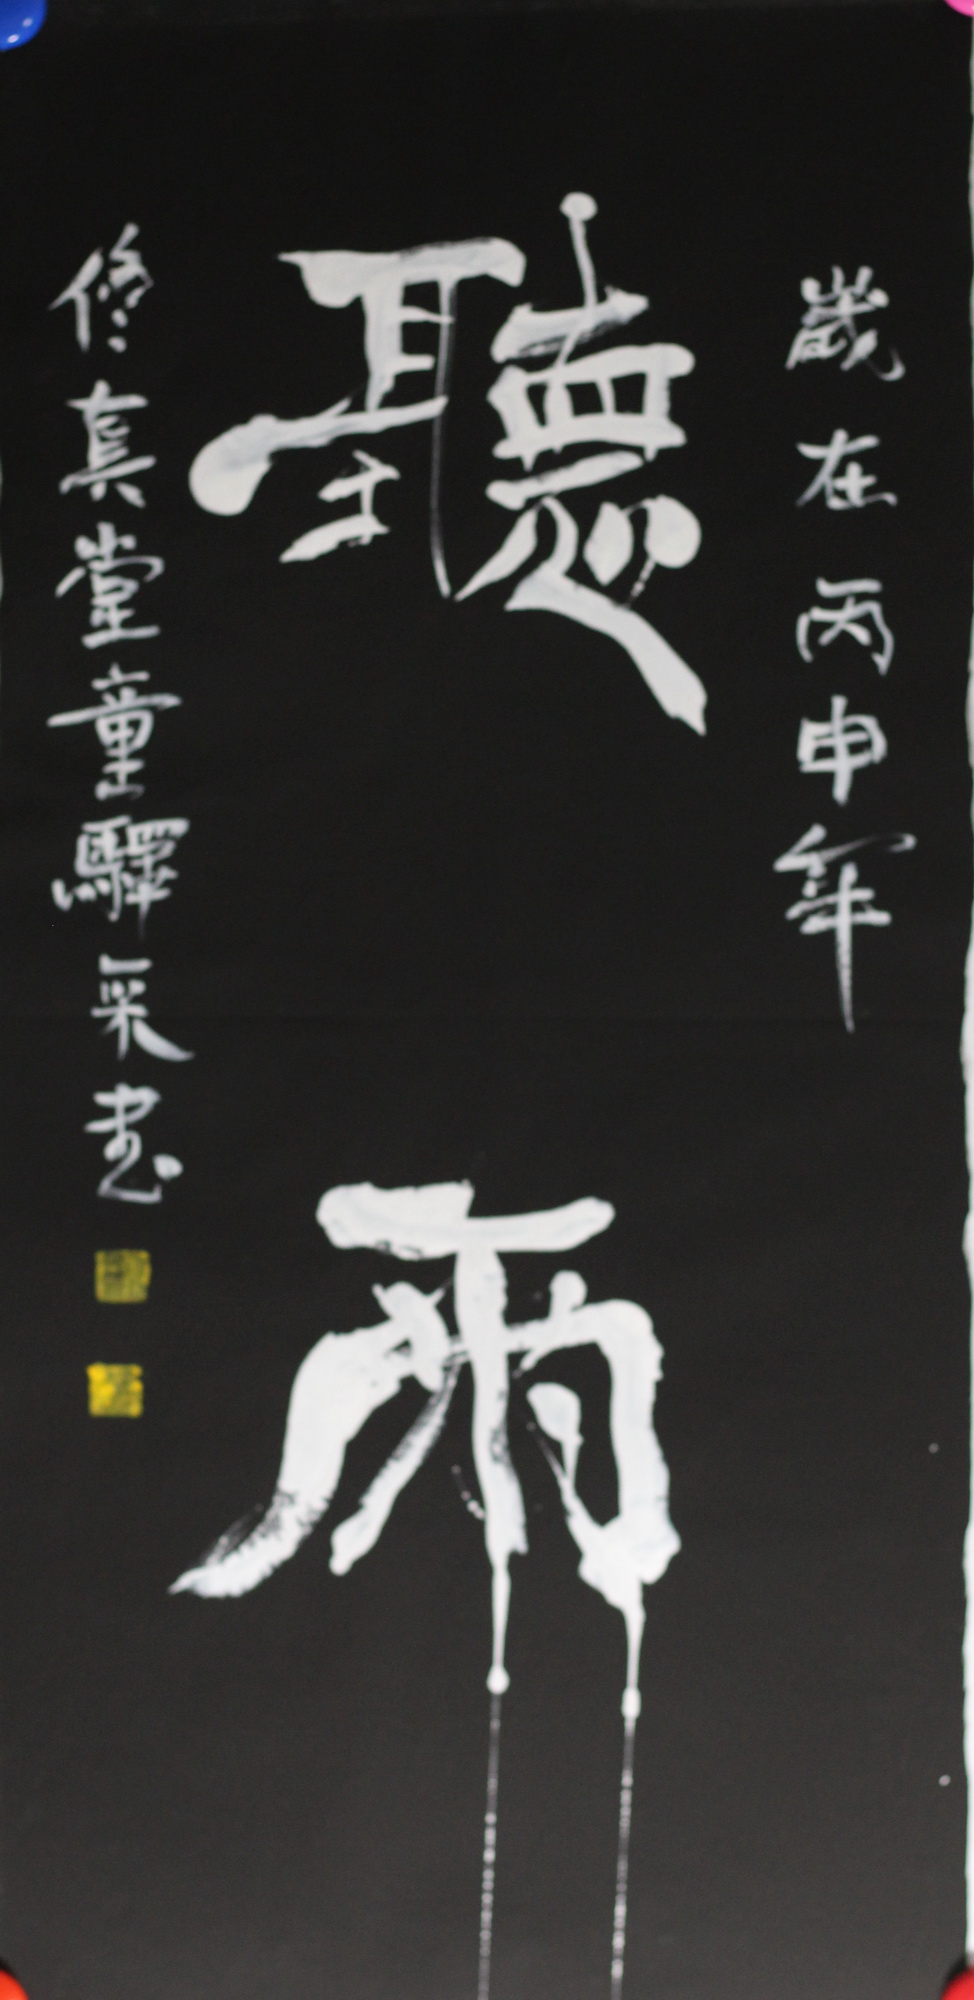 歲在丙申年
聽雨
修真堂童驛采書